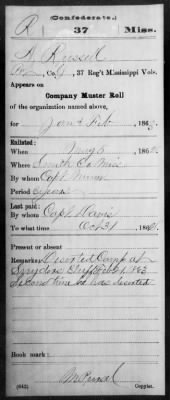 (Confederate.)
R 37 Miss.
A Russell
Co. J, 37 Reg't Mississippi Vols.
Appears on
Company Muster Roll
of the organization named above,
for Jan & Feb, 1863.
Enlisted:
When 186
Where Smith Co Miss
By whom Capt
Period
Last paid:
By whom Capt Davis
To what time Oct 31, 1862.
Present or absent
Remarks: Deserted Camp at
Snyders Bluff 1863
Second time he has deserted
Book mark:
(642) Copyist.